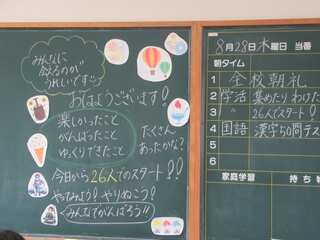 みんなに
会えるのが
うれしいです
おはようございます!
楽しかったこと
がんばったこと
ゆっくりできたこと
たくさん
あったかな?
今日から26人でのスタート!!
やってみよう! やりぬこう!
みんなでがんばろう!!
8月28日木曜日 当番
朝タイム
1 全校朝礼
2 学活 集めたり わけた
3 〃 26人でスタート!
4 国語 漢字50問テス
5
6
家庭学習 持ち